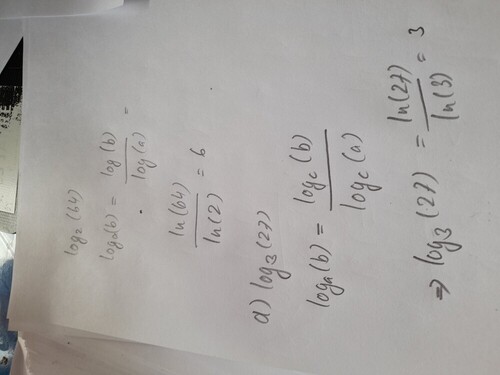 log₂ (64)
logₐ(b) = log (b) / log (a) =
ln(64) / ln(2) = 6
a) log₃ (27)
logₐ (b) = log_c (b) / log_c (a)
⇒ log₃ (27) = ln(27) / ln(3) = 3